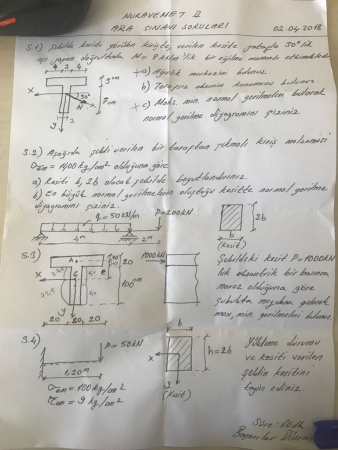 MUKAVEMET II
ARA SINAVI SORULARI
02.04.2018
S.1) Şekilde kesiti görülen kirişte, verilen kesitte yatayla 30° lik
açı yapan doğrultuda M= 8 kNm'lik bir eğilme momenti etkimektedir.
a) Ağırlık merkezini bulunuz.
b) Tarafsız eksenin konumunu bulunuz
c) Maks. min normal gerilmeleri bularak
normal gerilme diyagramını çiziniz.
4 3 4
3cm
7cm
30°
x
M
y
3
S.2) Aşağıda şekli verilen bir taraftan çıkmalı kiriş malzemesi
σem = 1400 kg/cm² olduğuna göre
a) Kesiti b, 2b olacak şekilde boyutlandırınız.
b) En büyük normal gerilmenin oluştuğu kesitte normal gerilme
diyagramını çiziniz.
q=50kN/m
P=200kN
4m
2m
2b
b
(Kesit)
S.3)
1000kN
20
100cm
x
G
e
y
20 20 20
Şekildeki kesit P=1000kN
luk eksantrik bir basınca
maruz olduğuna göre
şubuta meydana gelecek
max, min gerilmeleri bulunuz.
S.4)
P=50kN
1,20m
σem = 100 kg/cm²
τem = 9 kg/cm²
b
x
h=2b
y
(Kesit)
Yükleme durumu
ve kesiti verilen
şeklin kesitini
tayin ediniz.
Süre: 60dk
Başarılar Dilerim